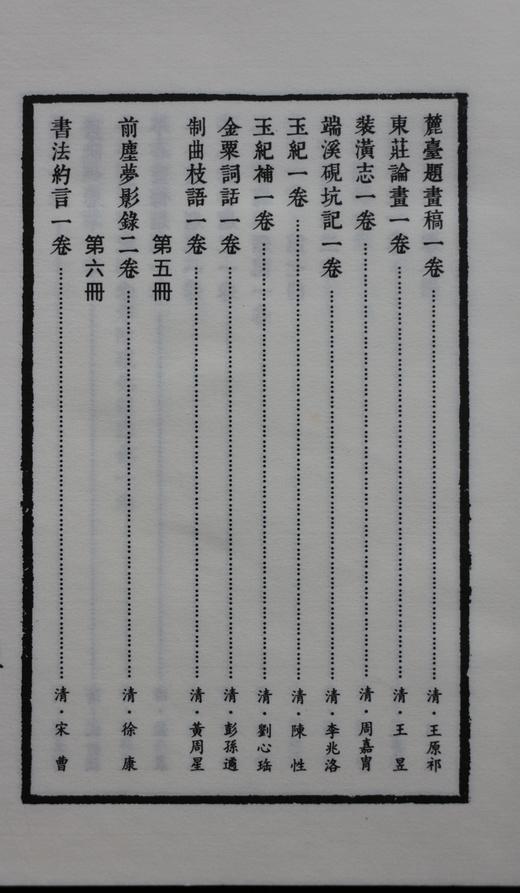 麓臺題畫稿一卷……清·王原祁
東莊論畫一卷……清·王 昱
裝潢志一卷……清·周嘉胄
端溪硯坑記一卷……清·李兆洛
玉紀一卷……清·陳 性
玉紀補一卷……清·劉心珤
金粟詞話一卷……清·彭孫遹
制曲枝語一卷……清·黃周星
第五冊
前塵夢影錄二卷……清·徐 康
第六冊
書法約言一卷……清·宋 曹